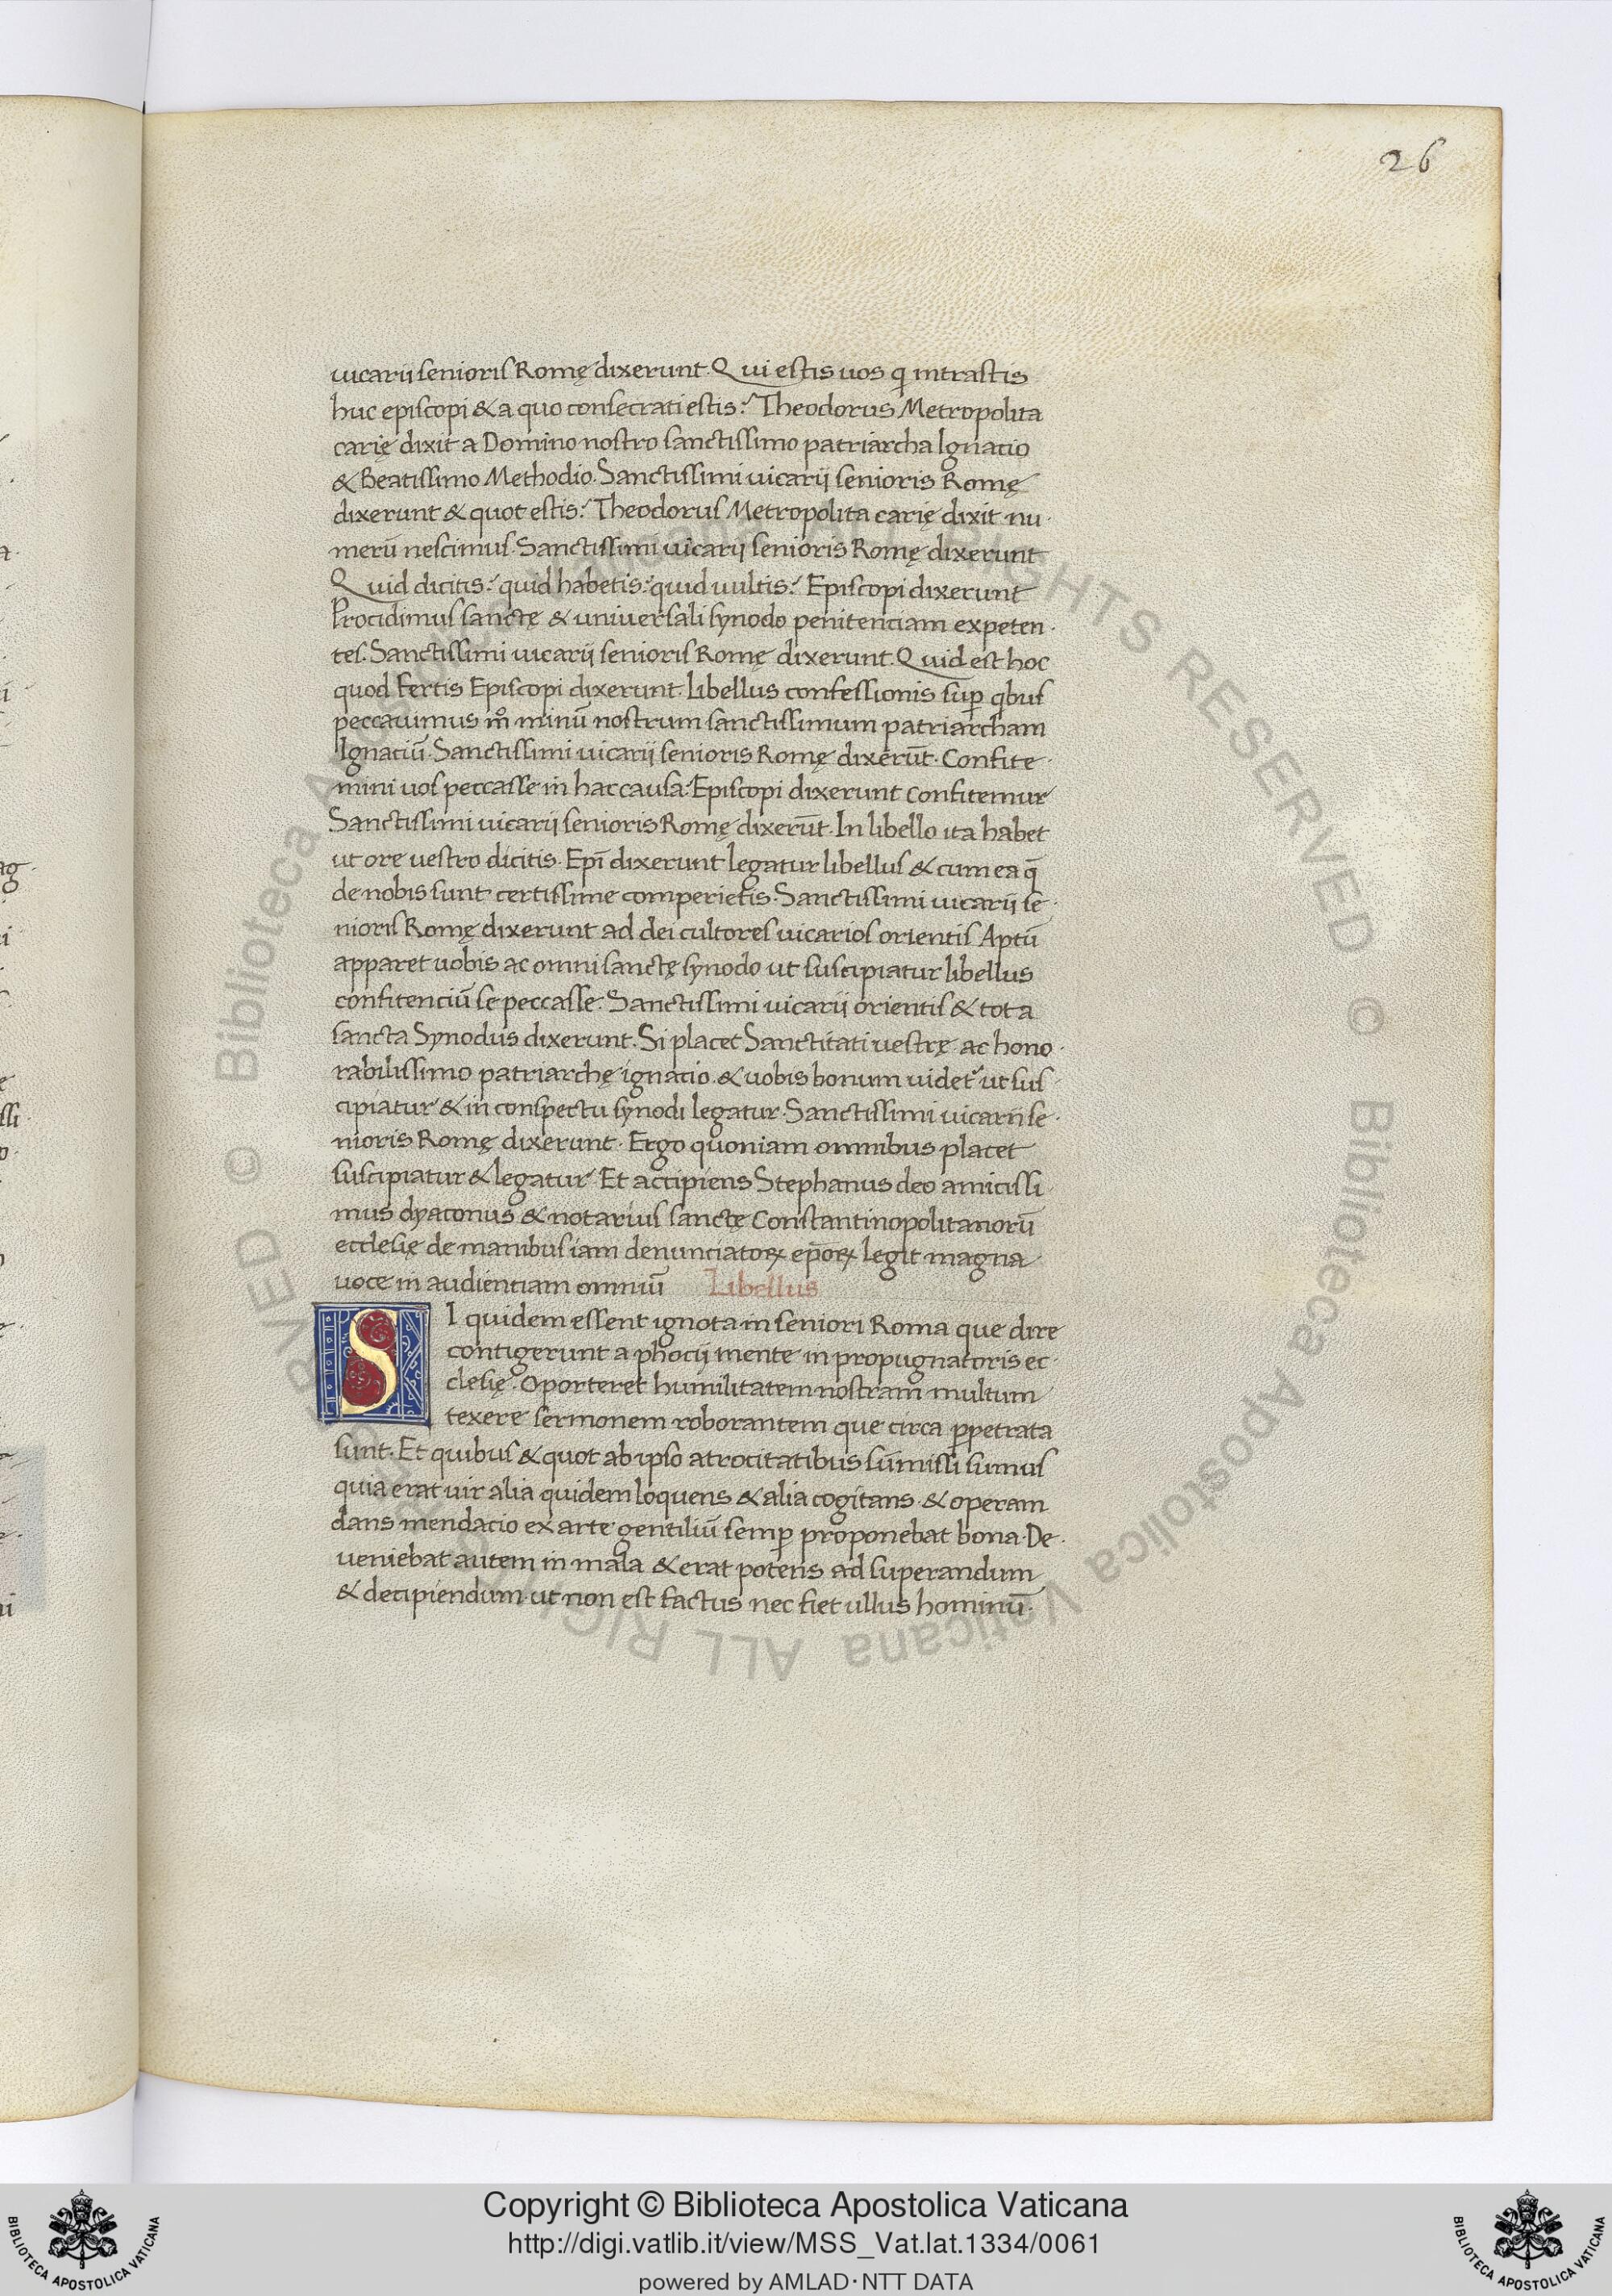 26
uicarii senioris Romę dixerunt. Qui estis uos q̇ intrastis
huc episcopi & a quo consecrati estis? Theodorus Metropolita
carię dixit a Domino nostro sanctissimo patriarcha Ignatio
& Beatissimo Methodio. Sanctissimi uicarij senioris Romę
dixerunt & quot estis? Theodorus Metropolita carię dixit nu·
merū nescimus. Sanctissimi uicarij senioris Romę dixerunt
Quid dicitis? quid habetis? quid uultis? Episcopi dixerunt
Procidimus sanctę & universali synodo penitentiam expeten·
tes. Sanctissimi uicarij senioris Romę dixerunt. Quid est hoc
quod fertis Episcopi dixerunt. libellus confessionis suꝑ q̇bus
peccauimus minū nostrum sanctissimum patriarcham
Ignatiū. Sanctissimi uicarij senioris Romę dixerūt. Confite·
mini uos peccasse in hac causa? Episcopi dixerunt confitemur
Sanctissimi uicarij senioris Romę dixerūt. In libello ita habet
ut ore uestro dicitis. Epī dixerunt legatur libellus & cum ea q̄
de nobis sunt certissime comperietis. Sanctissimi uicarij se·
nioris Romę dixerunt ad dei cultores uicarios orientis Aptū
apparet uobis ac omni sanctę synodo ut suscipiatur libellus
confitenciū se peccasse. Sanctissimi uicarij orientis & tota
sancta Synodus dixerunt. Si placet Sanctitati uestrę ac hono·
rabilissimo patriarchę ignatio. & uobis bonum uidet᷑ ut sus·
cipiatur & in conspectu synodi legatur. Sanctissimi uicarij se·
nioris Romę dixerunt. Ergo quoniam omnibus placet
suscipiatur & legatur Et accipiens Stephanus deo amicissi·
mus dyaconus & notarius sanctę Constantinopolitanorū
ecclesię de manibus iam denunciatoꝝ ep̄oꝝ legit magna
uoce in audientiam omniū Libellus
SI quidem essent ignota in seniori Roma que dire
contigerunt a phocij mente in propugnatoris ec·
clesię. Oporteret humilitatem nostram multum
texere sermonem roborantem que circa ꝑpetrata
sunt. Et quibus & quot ab ipso atrocitatibus sūmissi sumus
quia erat uir alia quidem loquens & alia cogitans. & operam
dans mendacio ex arte gentiliū semꝑ proponebat bona. De·
ueniebat autem in mala & erat potens ad superandum
& decipiendum ut non est factus nec fiet ullus hominū.
Copyright © Biblioteca Apostolica Vaticana
http://digi.vatlib.it/view/MSS_Vat.lat.1334/0061
powered by AMLAD · NTT DATA
BIBLIOTECA APOSTOLICA VATICANA
BIBLIOTECA APOSTOLICA VATICANA
© Biblioteca Apostolica Vaticana ALL RIGHTS RESERVED
© Biblioteca Apostolica Vaticana ALL RIGHTS RESERVED